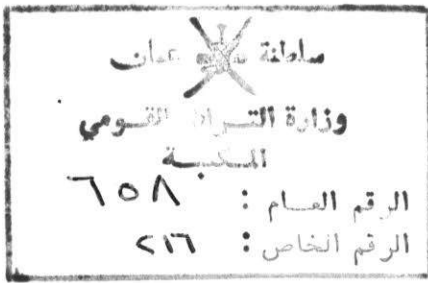 سلطنة عمان
وزارة التراث القومي
المكتبة
الرقم العام : ٦٥٨
الرقم الخاص : ٢١٦